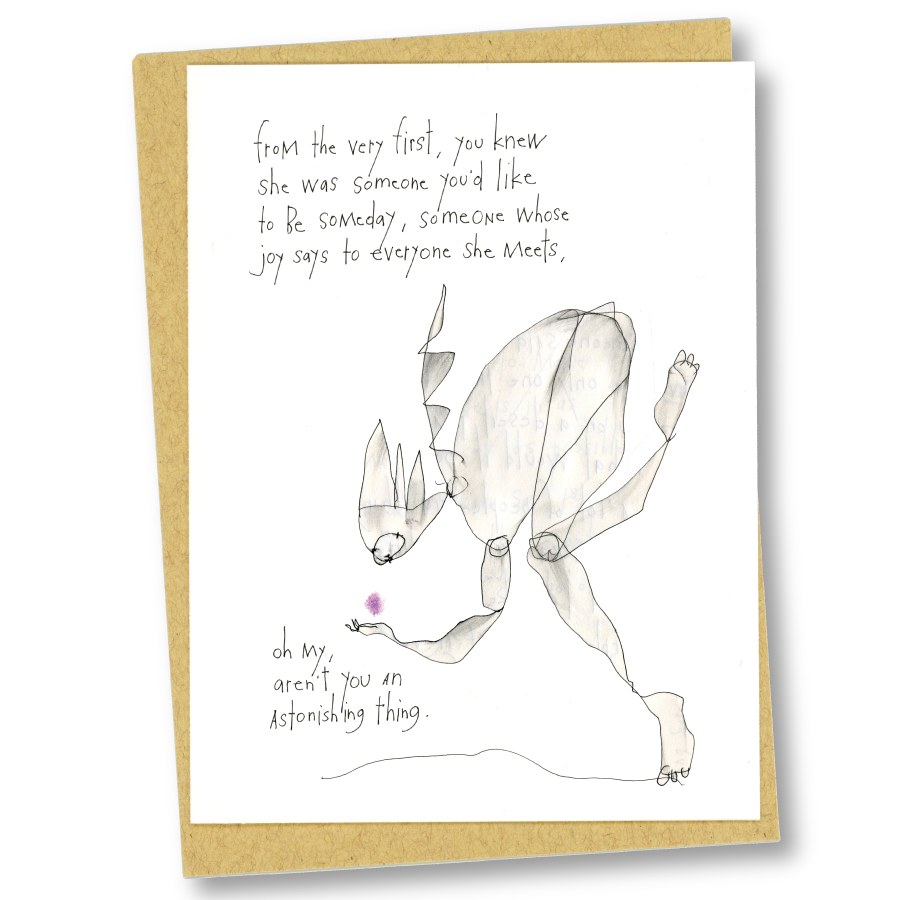 from the very first, you knew
she was someone you'd like
to Be someday, someone whose
joy says to everyone she meets,
oh my,
aren't you an
astonishing thing.